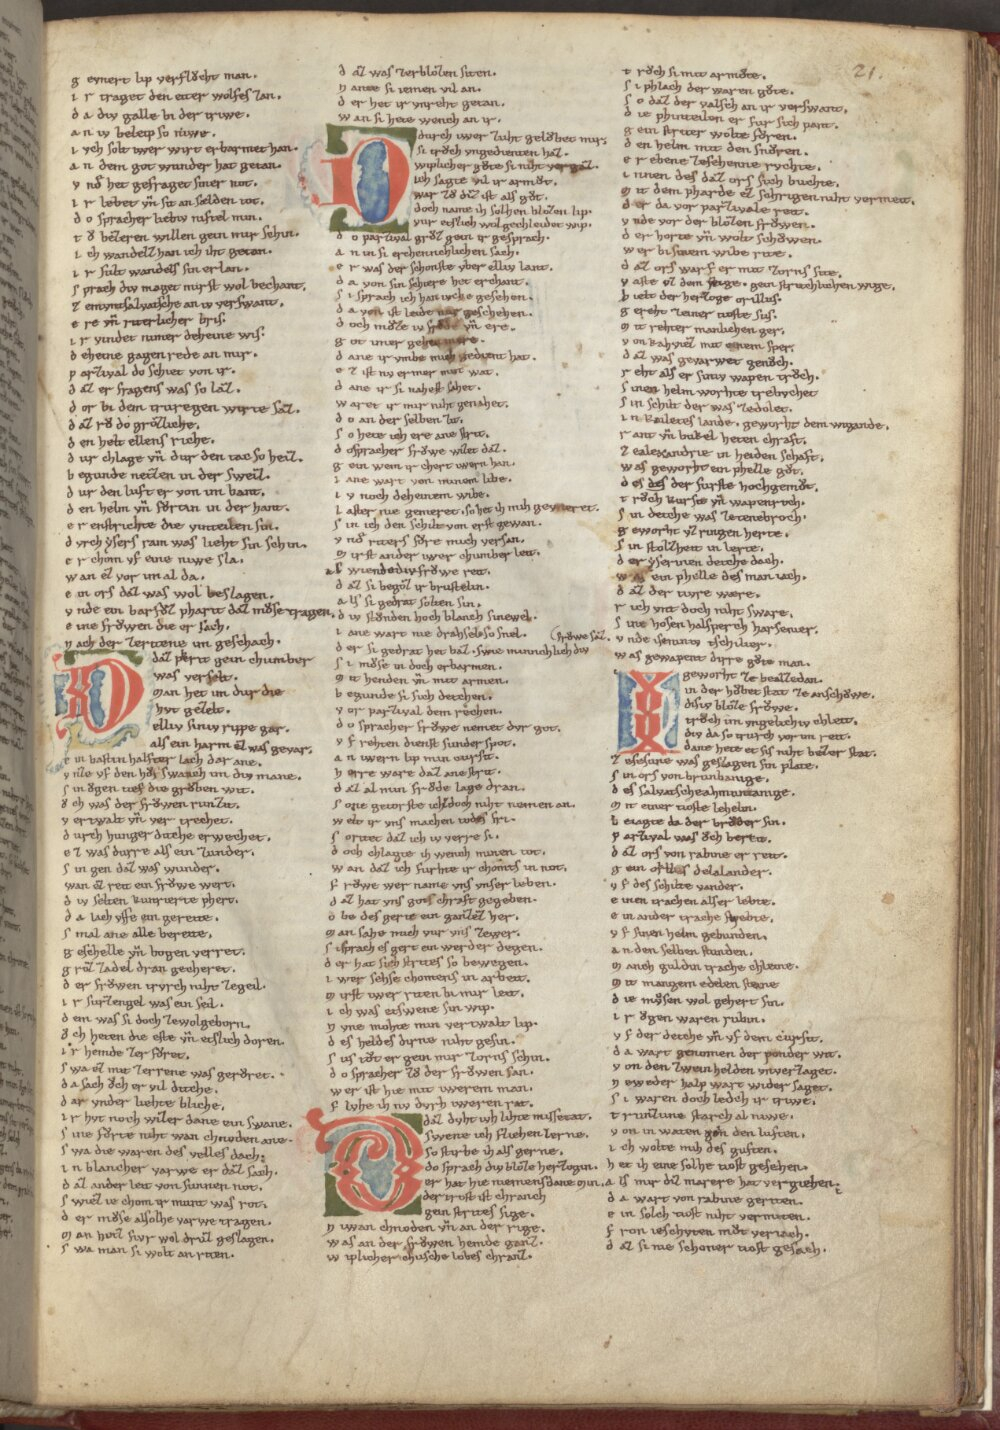 g evnert lip verflöcht man.
i r traget den eiter wolfes zan.
d a div galle bi der triwe.
a n iv beleip so niwe.
i vch solt iwer wirt erbarmet han.
a n dem got wunder hat getan.
v n̄ het gefraget siner not.
i r lebet vn̄ sit an sælden tot.
d o spracher liebiv niftel min.
t ů bezeren willen gein mir schin.
i ch wandel han ich iht getan.
i r sult wandels sin erlan.
s prach div maget mirst wol bechant.
z emvntsalvatsche an iv verswant.
e re vn̄ riterlicher bris.
i r vindet nimer deheine wis.
d eheine gagen rede an mir.
p arzival do schiet von ir.
d az er fragens was so laz.
d or bi dem truregen wirte saz.
d az rŏ do grözliche.
d en helt ellens riche.
d ur chlage vn̄ dur den tac so heiz.
b egunde netzen in der sweiz.
d ur den luft er von im bant.
d en helm vn̄ förtan in der hant.
e r enstrichte die vinteilen sin.
d vrch ysers ram was lieht sin schin.
e r chom vf eine niwe sla.
w an ez vor im al da.
e in ors daz was wol beslagen.
v nde ein barföz pharit daz möse tragen.
e ine frŏwen die er sach.
n ach der zeritene im geschach.
D az pferit gein chumber
was verselt.
man het im dur die
hvt gezelt.
elliv siniv rippe gar.
als ein harm ez was gevar.
e in bastin halfter lach dar ane.
v nze vf den hůf swanch im div mane.
s in ŏgen tief die gröben wit.
ŏ ch was der frŏwen runzit.
v ertwalt vn̄ ver trechet.
d urch hunger diche erwechet.
e z was durre als ein zunder.
s in gen daz was wunder.
w an ez reit ein frŏwe wert.
d iv selten kunrierte phert.
d a lach vffe ein gereite.
s mal ane alle bereite.
g eschelle vn̄ bogen verret.
g roz zadel dran gecheret.
d er frŏwen trvrch niht zegeil.
i r surzengel was ein seil.
d em was si doch zewolgeborn.
ŏ ch heten die este vn̄ etslich doren.
i r hemde zerföret.
s wa ez mit zerrene was geröret.
d a sach ŏch er vil diche.
d ar vnder liehte bliche.
i r hvt noch wizer dane ein swane.
s ine förte niht wan chnoden ane
s wa die waren des velles dach.
i n blancher varwe er daz sach.
d az ander leit von sunnen not.
s wiez ie chom ir munt was rot.
d er möse alsolhe varwe tragen.
m an hetz fivr wol druz geslagen.
s wa man si wolt an riten.
d az was zerblözen siten.
n ante si iemen vil an.
d er het ir vnreht getan.
w an si hete wench an ir.
D durch iwer zuht gelŏbet mirs
si trŏch vngedienten haz.
wiplicher göte si niht vergaz.
ich sagte vil ir armöt.
war zů diz ist als göt.
doch name ih solhen blözen lip.
vur etslich wol gechleidet wip.
d o parzival gröz gein ir gesprach.
a n in si erchennichlichen sach.
e r was der schonste vber elliv lant.
d a von sin schiere het erchant.
s i sprach ich han ivche gesehen.
d a von ist leide mir geschehen.
d och möze iv fröde vn̄ ere.
g ot imer geben mere.
d ane ir vmbe mich gedient hat.
e z ist nv ermer min wat.
d ane ir si nahest sahet.
w aret ir mir niht genahet.
d o an der selben zit.
s o hete ich ere ane strit.
d o spracher frŏwe wizet daz.
g ein wem ir chert iwern haz.
i ane wart von minem libe.
i v noch deheinem wibe.
l aster nie gemeret. so het ih mich geuneret.
s in ich den schilt von erst gewan.
v n̄ riters före mich versan.
m irst ander iwer chumber leit.
al weinde div frŏwe reit.
d az si begöz ir brustelin.
a ls si gedrat solten sin.
d iv stönden hoch blanch sinewel.
i ane wart nie drahsel so snel.
d er si gedrat het baz. swie minnichlich div frŏwe saz.
s i möse in doch erbarmen.
m it henden vn̄ mit armen.
b egunde si sich dechen.
v or parzival dem rechen.
d o spracher frŏwe nemet dvr got.
v f rehten dienst sunder spot.
a n iwern lip min cursit.
h erre ware daz ane strit.
d az al min fröde lage dran.
s one getorste ich doch niht nemen an.
w elt ir vns machen todes fri.
s o ritet daz ich iv verre si.
d och chlagte ih wench minen tot.
w an daz ich furhte ir chomts in not.
f rŏwe wer name vns vnser leben.
d az hat vns gots chraft gegeben.
o be des gerte ein ganzez her.
m an sahe mich vur vns zewer.
s i sprach es gert ein werder degen.
d er hat sich strites so bewegen.
i wer sehse chomens in arbeit.
m irst iwer riten bi mir leit.
i ch was etswene sin wip.
n vne mohte min vertwalt lip.
d es heldes dirne niht gesin.
s us töt er gein mir zorns schin.
d o spracher zů der frŏwen san.
w er ist hie mit iwerem man.
f luhe ih nv dvrh iweren rat.
D daz dvht ivh lihte missetat.
swene ich fliehen lerne.
so stirbe ih als gerne.
do sprach div blöze herzogin.
er hat hie niemens dane min.
der trost ist chranch
gein strites sige.
n iwan chnoden vn̄ an der rige.
w as an der frŏwen hemde ganz.
w iplicher chusche lobes chranz.
t röch si mit armöte.
s i phlach der waren göte.
s o daz der valsch an ir verswant.
d ie phinteilon er fur sich pant.
g ein striter wolte fören.
d en helm mit den snören.
e r ebene zesehenne rvchte.
i nnen des daz ors sich buchte.
m it dem pharde ez schrigen niht vermeit.
d er da vor parzivale reit.
v nde vor der blözen frŏwen.
d er horte vn̄ wolt schŏwen.
w er bi sinem wibe rite.
d az ors warf er mit zorns site.
v aste vz dem stige. gein stritlichen wige.
h ielt der herzoge orillus.
g ereht zeiner tioste sus.
m it rehter manlichen ger.
v on kahviez mit einem sper.
d az was gevarwet genŏch.
r eht als er siniv wapen trŏch.
s inen helm worhte trebvchet
s in schilt der was zedolet.
i n kailetes lande. geworht dem wigande.
r ant vn̄ bukel heten chraft.
z ealexandrie in heiden schaft.
w as geworht ein phelle göt.
d es der furste hochgemöt.
t rŏch kursit vn̄ wapenroch.
s in deche was zetenebroch.
g eworht vz ringen herte.
s in stolzheit in lerte.
d er ysernnen deche dach.
w as ein phelle des man iach.
d az der tivre were.
r ich vnt doch niht sware.
s ine hosen halsperch harsenier.
v nde iseniniv tschilier.
w as gewapent dirre göte man.
geworht ze bealzedan.
in der höbet stat ze anschŏwe.
disiv blöze frŏwe.
trŏch im vngelichiv chleit.
div da so trurch vor im reit.
dane hete et sis niht bezer stat.
z esessune was geslagen sin plate.
s in ors von brunbanige.
d es salvatscheahmuntanige.
m it einer tioste lehelin.
b eiagte da der bröder sin.
p arzival was ŏch bereit.
d az ors von rabine er reit.
g ein orilus delalander.
v f des schilte vander.
e inen trachen alser lebte.
e in ander trache strebte.
v f sinen helm gebunden.
a n den selben stunden.
m anch guldin trache chleine.
m it mangem edelen steine
d ie mŏsen wol gehert sin.
i r ŏgen waren rubin.
v f der deche vn̄ vf dem cursit.
d a wart genomen der ponder wit.
v on den zwein helden vnverzaget.
n eweder halp wart wider saget.
s i waren doch ledich ir triwe.
t runzune starch al niwe.
v on in waten gein den luften.
i ch wolte mih des guften.
h et ih eine solhe tiost gesehen.
a ls mir diz marere hat vergiehen.
d a wart von rabine geriten.
e in solch tiost niht vermiten.
f ron ieschvten möt veriach.
d az si nie schoner tiost gesach.
21.